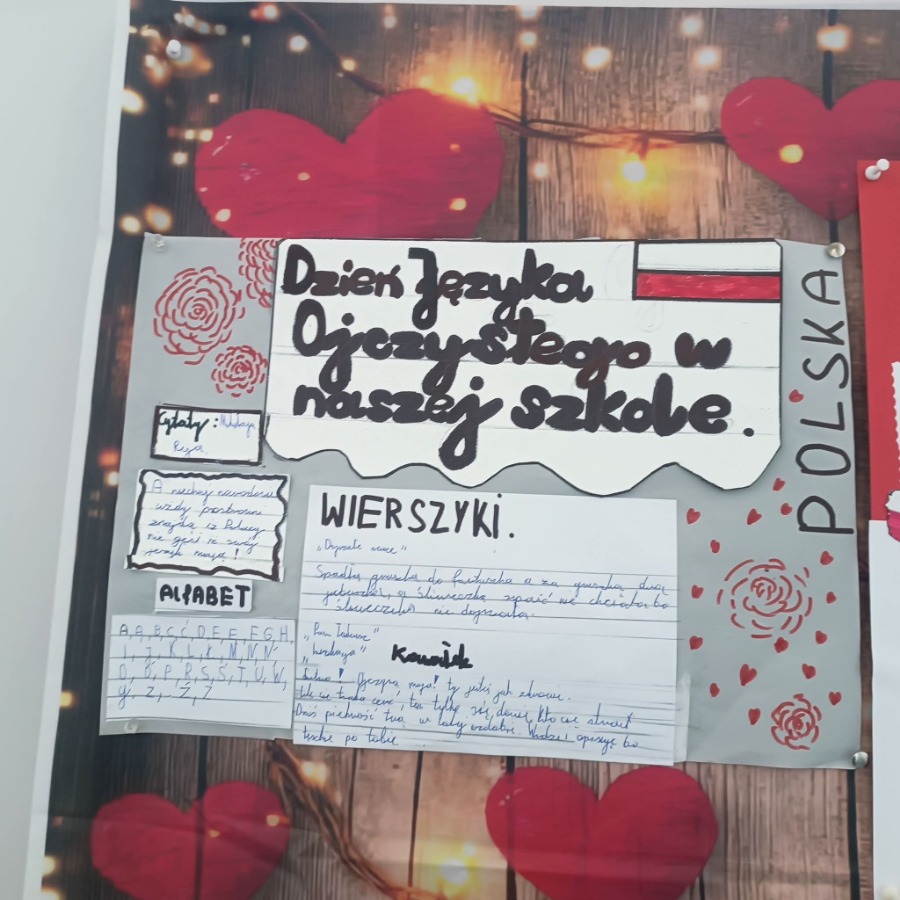 Dzień Języka
Ojczystego w
naszej szkole.
POLSKA
Cytaty: Mikołaja
Reja.
A niechaj narodowie
wżdy postronni
znajdą iż Polacy
nie gęsi iż swój
język mają!
ALFABET
A, Ą, B, C, Ć, D, E, Ę, F, G, H
I, J, K, L, Ł, M, N, Ń
O, Ó, P, R, S, Ś, T, U, W,
Y, Z, Ź, Ż
WIERSZYKI.
„Dojrzałe owoce"
Spadła gruszka do fartuszka a za gruszką dwa
jabłuszka, a śliweczka spaść nie chciała bo
śliweczka nie dojrzała.
„Pan Tadeusz"
„Inwokacja"
Kawałek
Litwo! Ojczyzno moja! ty jesteś jak zdrowie.
Ile cię trzeba cenić, ten tylko się dowie, Kto cię stracił
Dziś piękność twą w całej ozdobie. Widzę i opisuję bo
tęsknię po tobie